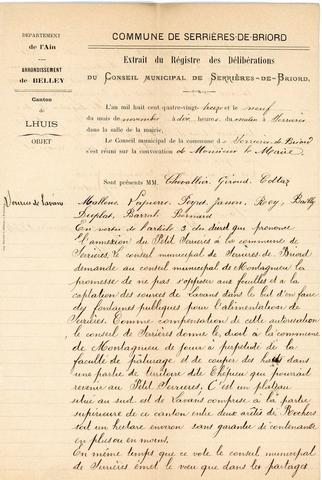 DÉPARTEMENT
de l'Ain
ARRONDISSEMENT
de BELLEY
Canton
de
LHUIS
OBJET
COMMUNE DE SERRIÈRES-DE-BRIORD
Extrait du Registre des Délibérations
DU CONSEIL MUNICIPAL DE SERRIÈRES-DE-BRIORD.
L'an mil huit cent quatre-vingt-treize et le neuf
du mois de novembre à dix heures du matin à Serrières
dans la salle de la mairie,
Le Conseil municipal de la commune de Serrières de Briord
s'est réuni sur la convocation de Monsieur le Maire
Sont présents MM. Chevallier, Giroud, Cottaz
Sources de Lavans
Jasson, Roy, Bailly
Barral Bernard
En vertu de l'article 3 du qui prononce
l'annexion du Petit Serrières à la commune de
Serrières, le conseil municipal de Serrières de Briord
demande au conseil municipal de Montagneu la
promesse de ne pas s'opposer aux fouilles et a la
captation des sources de Lavans dans le but d'en faire
des fontaines publiques pour l'alimentation de
Serrières. Comme compensation de cette autorisation
le conseil de Serrières donne le droit à la commune
de Montagneu de jouir à perpétuité de la
faculté de pâturage et de couper des dans
une partie de territoire de qui pourrait
revenir au Petit Serrières, C'est un plateau
situé au sud est de Lavans comprise à la partie
supérieure de ce canton entre deux arêtes de Rochers
soit un hectare environ sans garantie de contenance
en plus ou en moins.
En même temps que ce vote le conseil municipal
de Serrières émet le voeu que dans les partages